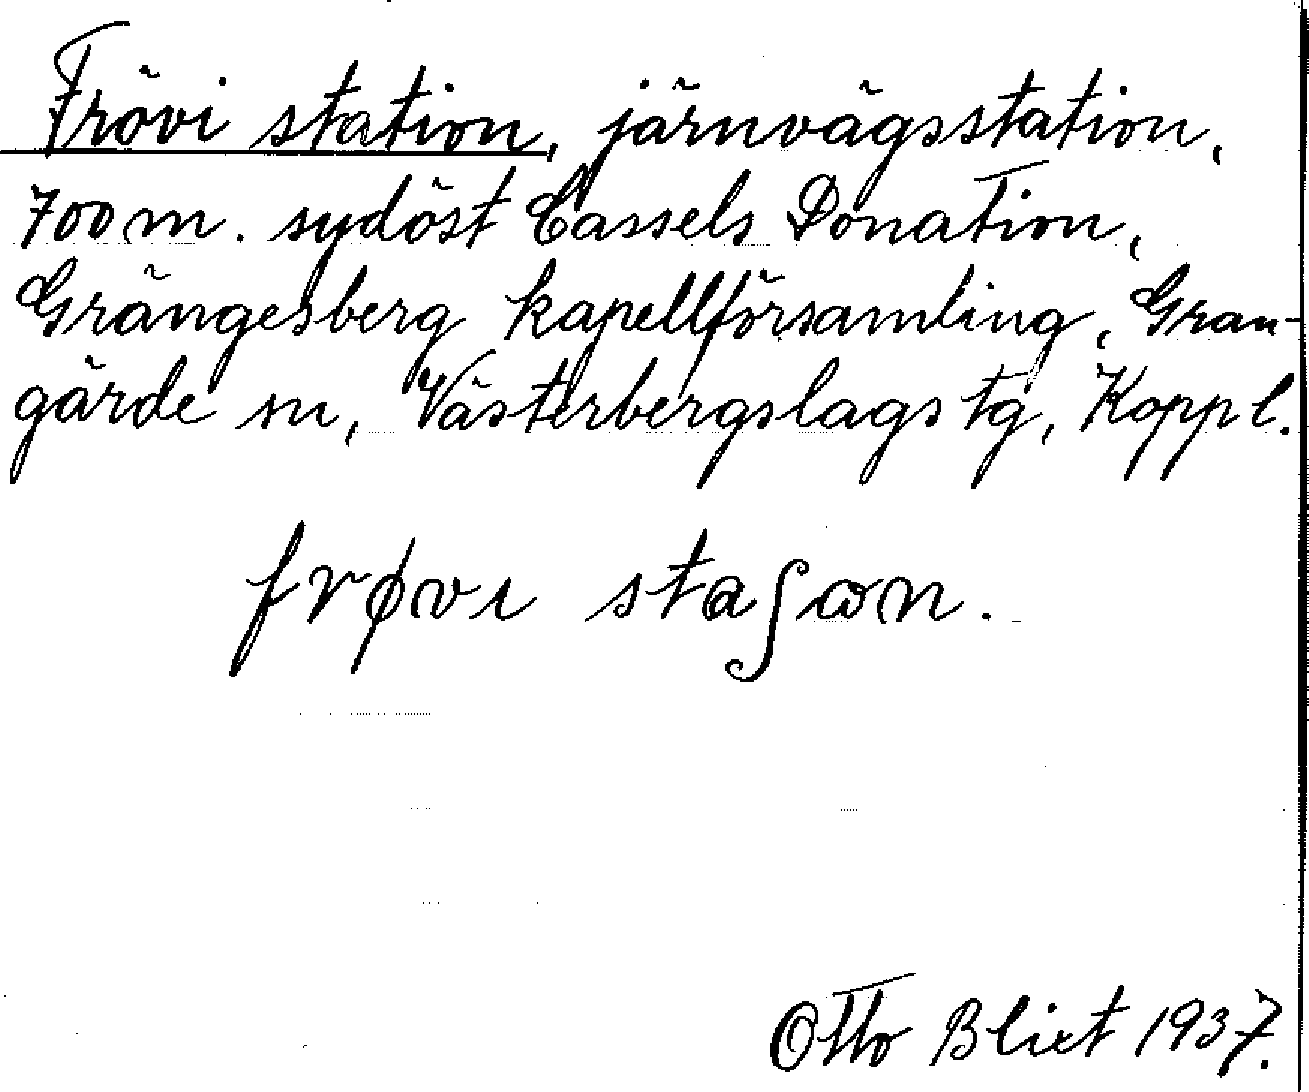 Frövi station, järnvägsstation,
700 m. sydöst Cassels Donation,
Grängesberg kapellförsamling, Gran-
gärde sn, Västerbergslags tg, Koppl.
frøvi staʃɷn.
Otto Blixt 1937.